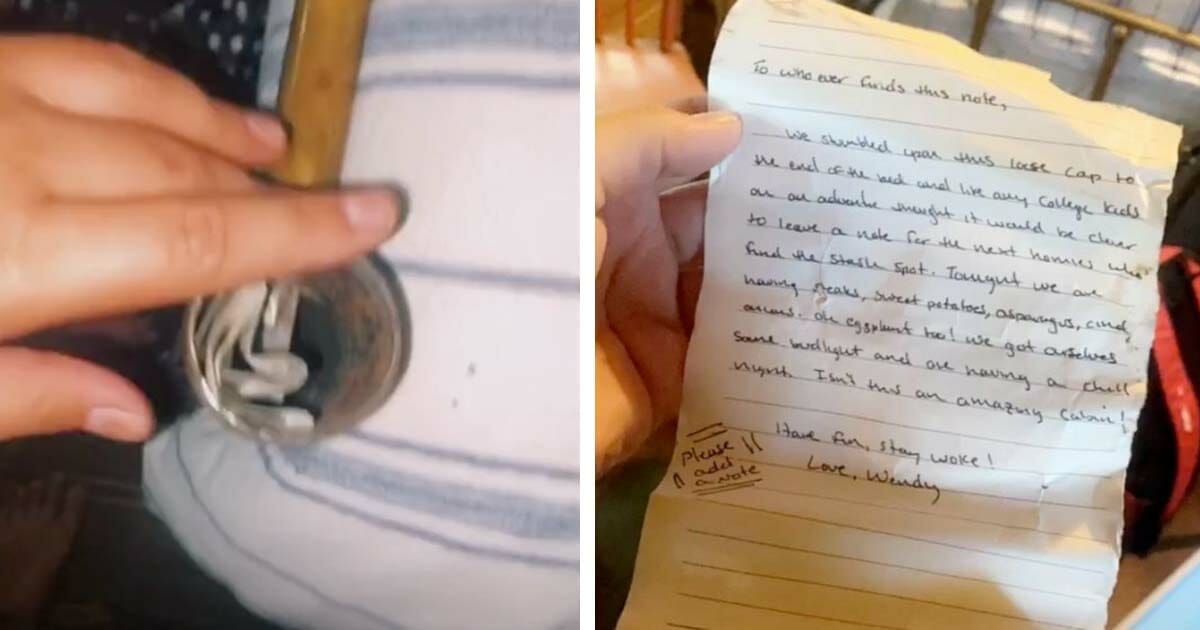 To who ever finds this note,
We stumbled upon this loose cap to
the end of the bed and like any College kids
on an adventure thought it would be clever
to leave a note for the next homies who
find the stash spot. Tonight we are
having steaks, sweet potatoes, asparagus, and
onions. oh eggplant too! We got ourselves
some budlight and are having a chill
night. Isn't this an amazing Cabin!
Have fun, stay woke!
Love, Wendy
please
add
a note